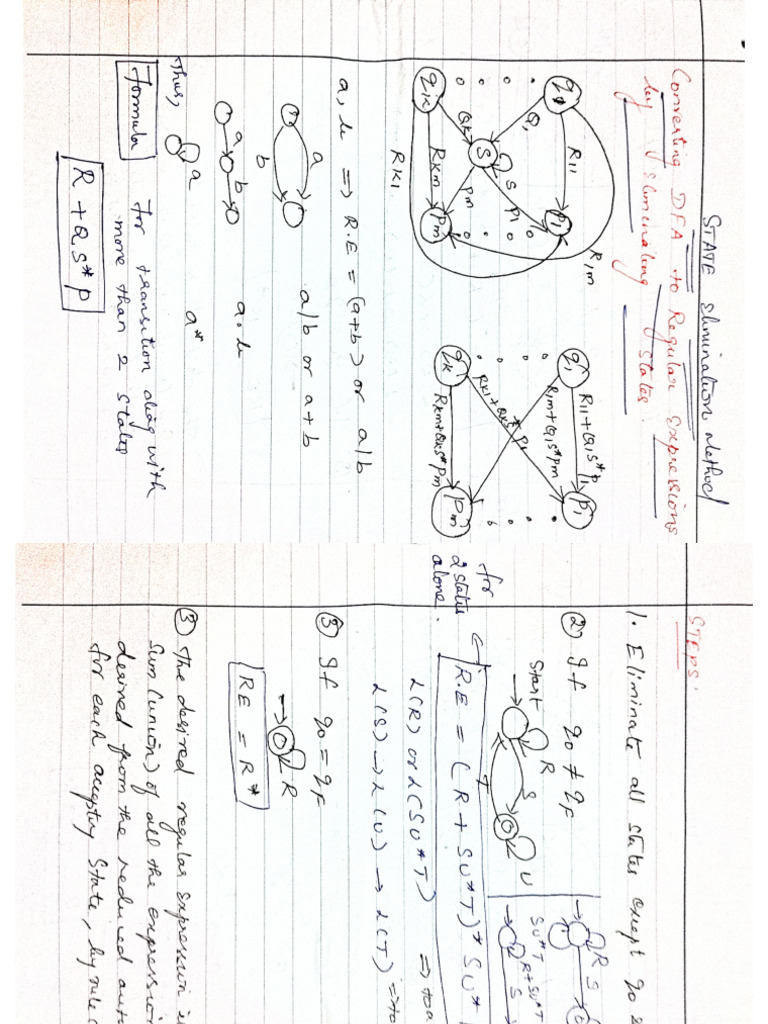 STATE Elimination Method
Converting DFA to Regular Expressions
by Eliminating States.
q1 R11 p1 R1m
Q1 S P1
S
Qk Pm
qk Rkm Pm
Rk1
q1 R11+Q1S*P1 P1
R1m+Q1S*Pm
Rk1+QkS*P1
qk Rkm+QkS*Pm Pm
a, b => R.E = (a+b) or a/b
a
b
a/b or a+b
a b
a.b
Thus,
a
a*
Formula
For transition diag with
more than 2 states
R + QS*P
STEPS:
1. Eliminate all states except q0 &
② If q0 ≠ qF
Start R S U
T
R S
SU*T
R+SU*T
S
for
2 states
alone.
R.E = (R + SU*T)* SU*
L(R) or L(SU*T)
L(S) → L(U) → L(T)
③ If q0 = qF
R
RE = R*
③ The desired regular expression is
Sum (union) of all the expression
desired from the reduced auto
for each accepting State, by rule